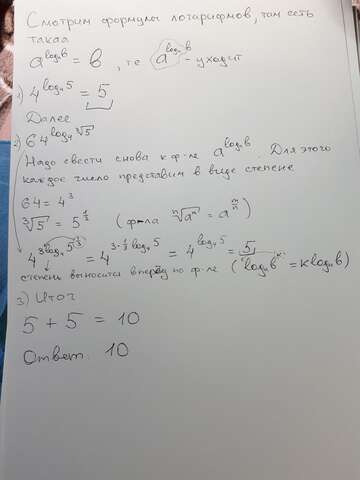 Смотрим формулы логарифмов, там есть
такая
a^{log_a b} = b , те a^{log_a b} - уходит
1) 4^{log_4 5} = 5
Далее
2) 64^{log_4 ∛5}
Надо свести снова к ф-ле a^{log_a b}. Для этого
каждое число представим в виде степене
64 = 4^3
∛5 = 5^{1/3} (ф-ла ⁿ√a^m = a^{m/n})
4^{3 log_4 5^{1/3}} = 4^{3·1/3 log_4 5} = 4^{log_4 5} = 5
степень выносится вперёд по ф-ле (log_a b^k = k log_a b)
3) Итог
5 + 5 = 10
Ответ. 10